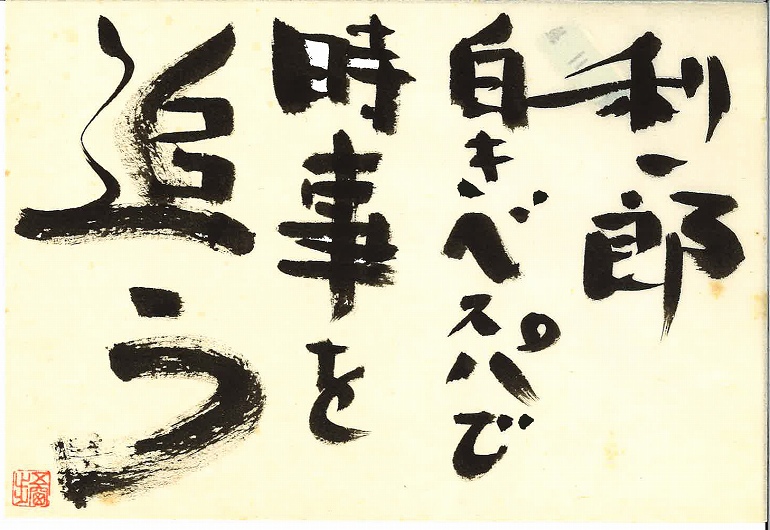 利一郎
白きベスパで
時事を
追う